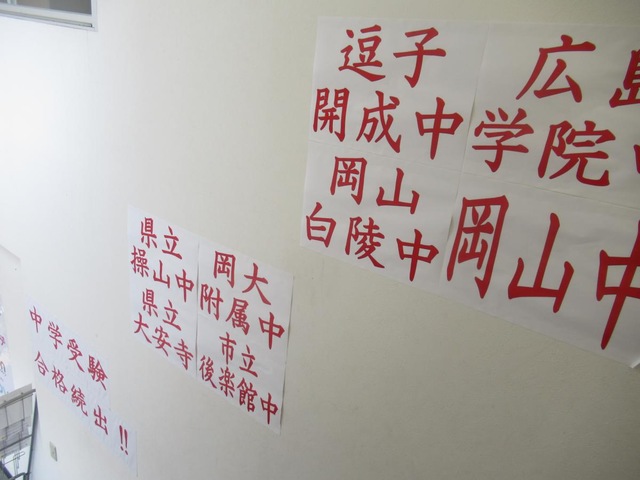 逗子
開成中
広島
学院中
岡山
白陵中
岡山中
県立
操山中
県立
大安寺
岡大
附属中
市立
後楽館中
中学受験
合格続出!!